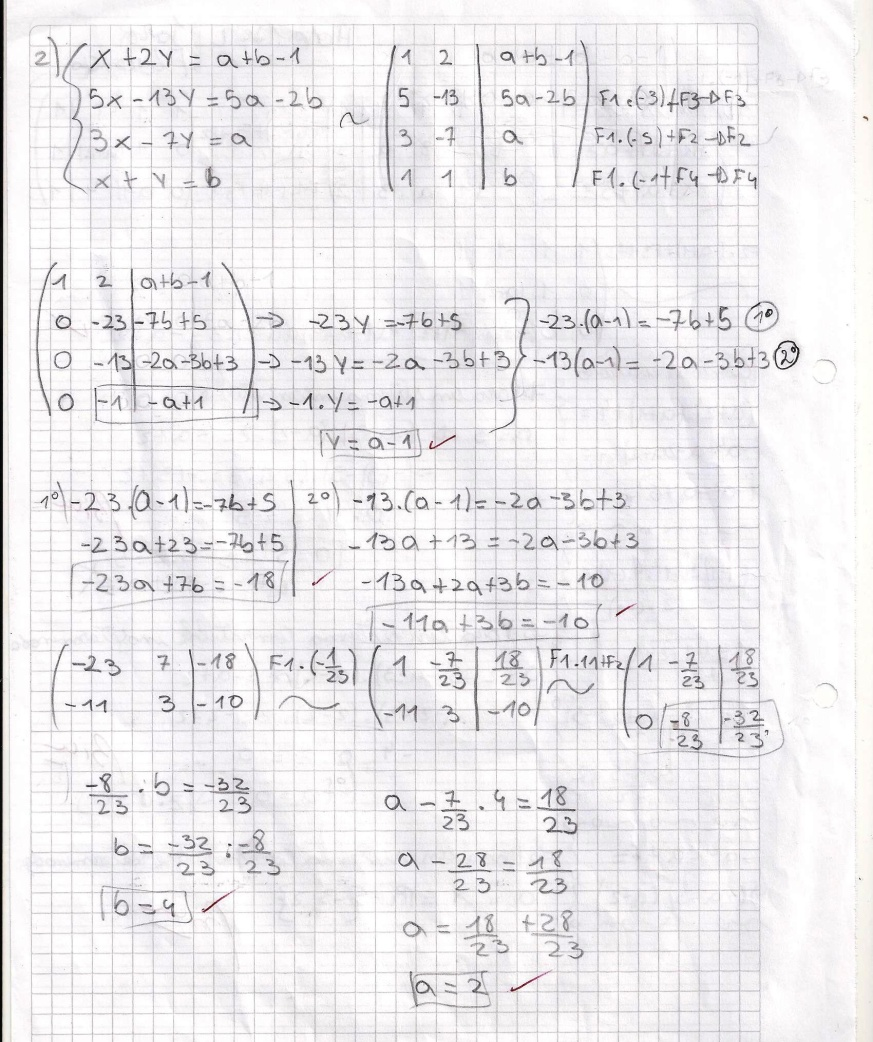 2) x + 2y = a+b-1
5x - 13y = 5a - 2b
3x - 7y = a
x + y = b
~
1 2 | a+b-1
5 -13 | 5a-2b F1.(-3)+F3→F3
3 -7 | a F1.(-5)+F2→F2
1 1 | b F1.(-1+F4→F4
1 2 | a+b-1
0 -23 | -7b+5 → -23y = -7b+5
0 -13 | -2a-3b+3 → -13y = -2a-3b+3
0 -1 | -a+1 → -1.y = -a+1
y = a-1 ✓
-23.(a-1) = -7b+5 1º
-13(a-1) = -2a-3b+3 2º
1º) -23.(a-1) = -7b+5
-23a+23 = -7b+5
-23a+7b = -18 ✓
2º) -13.(a-1) = -2a-3b+3
-13a+13 = -2a-3b+3
-13a+2a+3b = -10
-11a+3b = -10 ✓
-23 7 | -18
-11 3 | -10
F1.(-1/23) ~
1 -7/23 | 18/23
-11 3 | -10
F1.11+F2 ~
1 -7/23 | 18/23
0 -8/23 | -32/23
-8/23 . b = -32/23
b = -32/23 : -8/23
b = 4 ✓
a - 7/23 . 4 = 18/23
a - 28/23 = 18/23
a = 18/23 + 28/23
a = 2 ✓